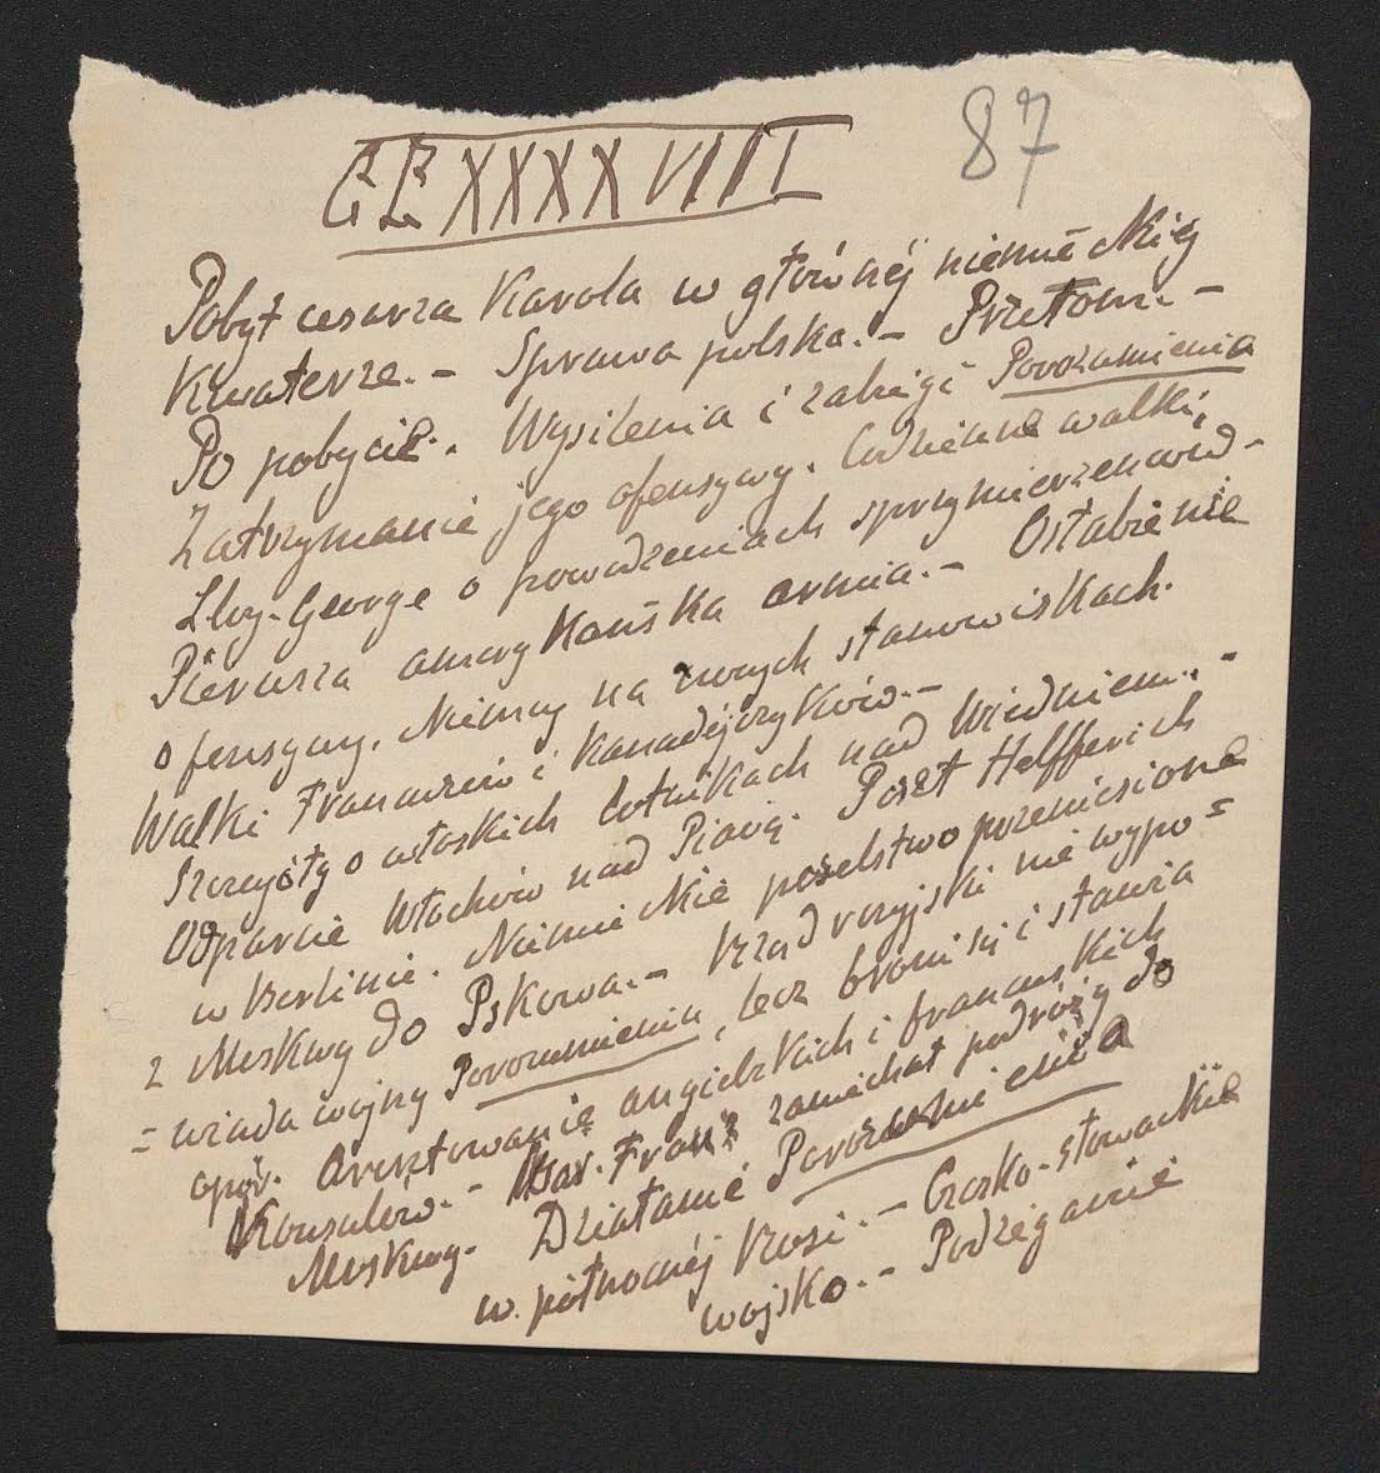 87
CCXXXXVIII
Pobyt cesarza Karola w głównéj niemieckiéj
Kwaterze. - Sprawa polska. - Przełom. -
Po pobycie. Wysilenia i zabiegi Porozumienia
Zatrzymanie jego ofensywy. Codzienne walki,
Lloy-George o powodzeniach sprzymierzeńców -
Pierwsza amerykańska armia. - Osłabienie
ofensywy. Niemcy na nowych stanowiskach.
Walki Francuzów i Kanadyjczyków. -
Szczegóły o włoskich lotnikach nad Wiedniem. -
Odparcie Włochów nad Piavą. Poseł Helfferich
w Berlinie. Niemieckie poselstwo przeniesione
z Moskwy do Pskowa. - Rząd rosyjski nie wypo=
=wiada wojny Porozumieniu, lecz broni się i stawia
opór. Aresztowanie angielskich i francuskich
Konsulów. - Mar. Franz zaniechał podróży do
Moskwy. Działanie Porozumienia
w północnéj Rosi. - Czesko-słowackie
wojsko. - Podżeganie